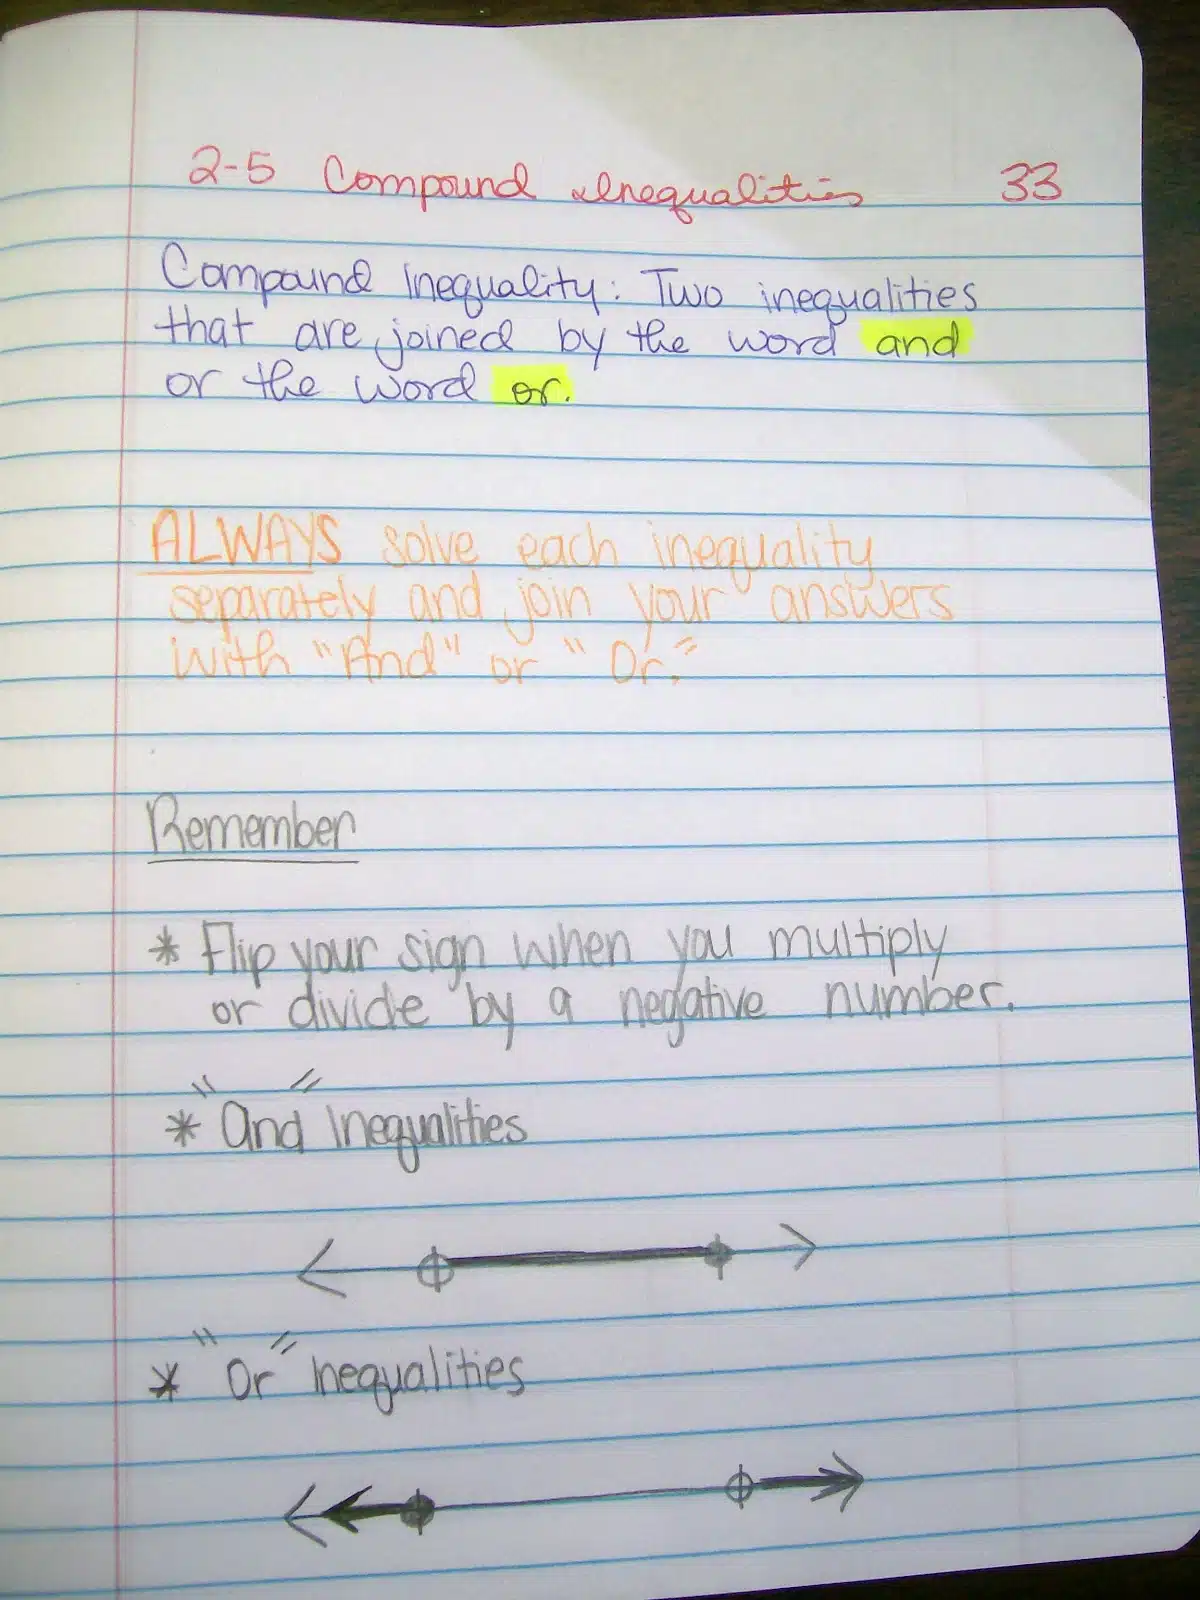 2-5 Compound Inequalities 33
Compound Inequality: Two inequalities
that are joined by the word and
or the word or.
ALWAYS solve each inequality
separately and join your answers
with "And" or "Or."
Remember
* Flip your sign when you multiply
or divide by a negative number.
* "And" Inequalities
* "Or" Inequalities